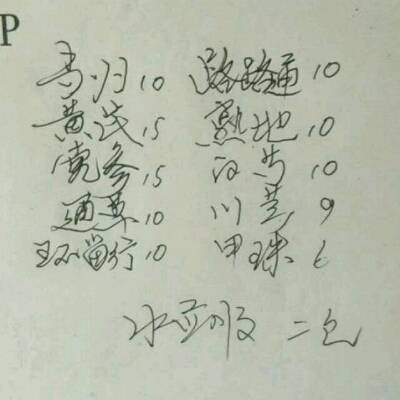 P
当归10 路路通10
黄芪15 熟地10
党参15 白芍10
通草10 川芎9
王不留行10 甲珠6
水煎服 二包